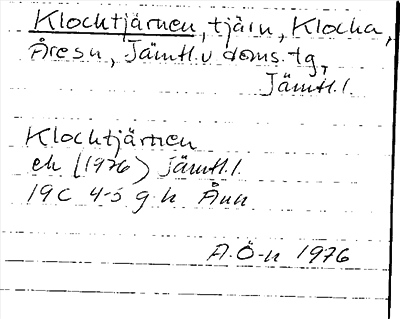 Klocktjärnen, tjärn, Klocka,
Åre sn, Jämtl.v doms. tg,
Jämtl. l.
Klocktjärnen
ek (1976) Jämtl. l.
19C 4-5 g h Ånn
A.Ö-n 1976